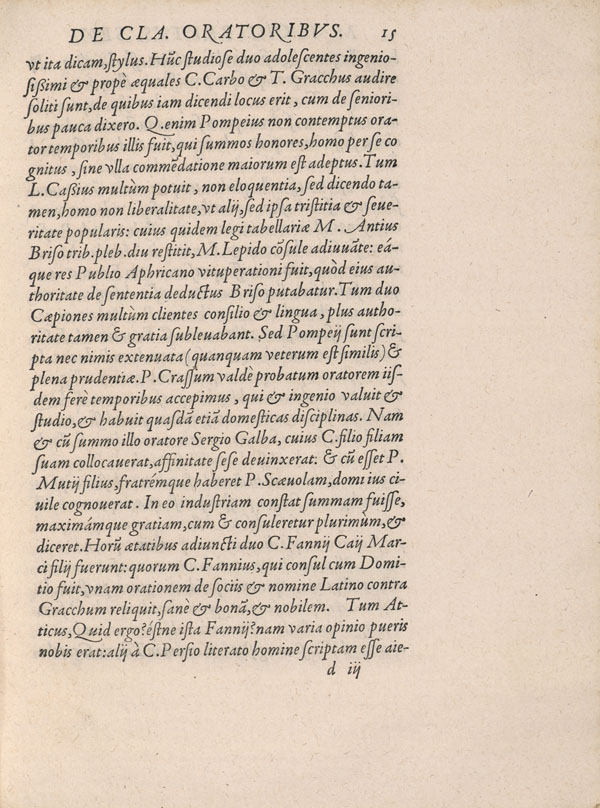 DE CLA. ORATORIBVS. 15
vt ita dicam,stylus. Hũc studiose duo adolescentes ingenio-
sißimi & propè æquales C.Carbo & T. Gracchus audire
soliti sunt,de quibus iam dicendi locus erit, cum de seniori-
bus pauca dixero. Q.enim Pompeius non contemptus ora-
tor temporibus illis fuit,qui summos honores,homo per se co
gnitus, sine vlla commẽdatione maiorum est adeptus.Tum
L.Caßius multùm potuit, non eloquentia, sed dicendo ta-
men,homo non liberalitate,vt alij,sed ipsa tristitia & seue-
ritate popularis: cuius quidem legi tabellariæ M. Antius
Briso trib.pleb.diu restitit, M.Lepido cõsule adiuuãte: eá-
que res Publio Aphricano vituperationi fuit,quòd eius au-
thoritate de sententia deductus Briso putabatur.Tum duo
Cæpiones multùm clientes consilio & lingua, plus autho-
ritate tamen & gratia subleuabant. Sed Pompeij sunt scri-
pta nec nimis extenuata(quanquam veterum est similis)&
plena prudentiæ.P.Crassum valdè probatum oratorem iis-
dem ferè temporibus accepimus, qui & ingenio valuit &
studio,& habuit quasdã etiã domesticas disciplinas. Nam
& cũ summo illo oratore Sergio Galba, cuius C.filio filiam
suam collocauerat,affinitate sese deuinxerat: & cũ esset P.
Mutij filius,fratrémque haberet P.Scæuolam,domi ius ci-
uile cognouerat. In eo industriam constat summam fuisse,
maximámque gratiam,cum & consuleretur plurimum,&
diceret.Horũ ætatibus adiuncti duo C.Fannij Caij Mar-
ci filij fuerunt: quorum C.Fannius,qui consul cum Domi-
tio fuit,vnam orationem de sociis & nomine Latino contra
Gracchum reliquit,sanè & bonã,& nobilem. Tum At-
ticus,Quid ergo?éstne ista Fannij?nam varia opinio pueris
nobis erat:alij à C.Persio literato homine scriptam esse aie-
d iij